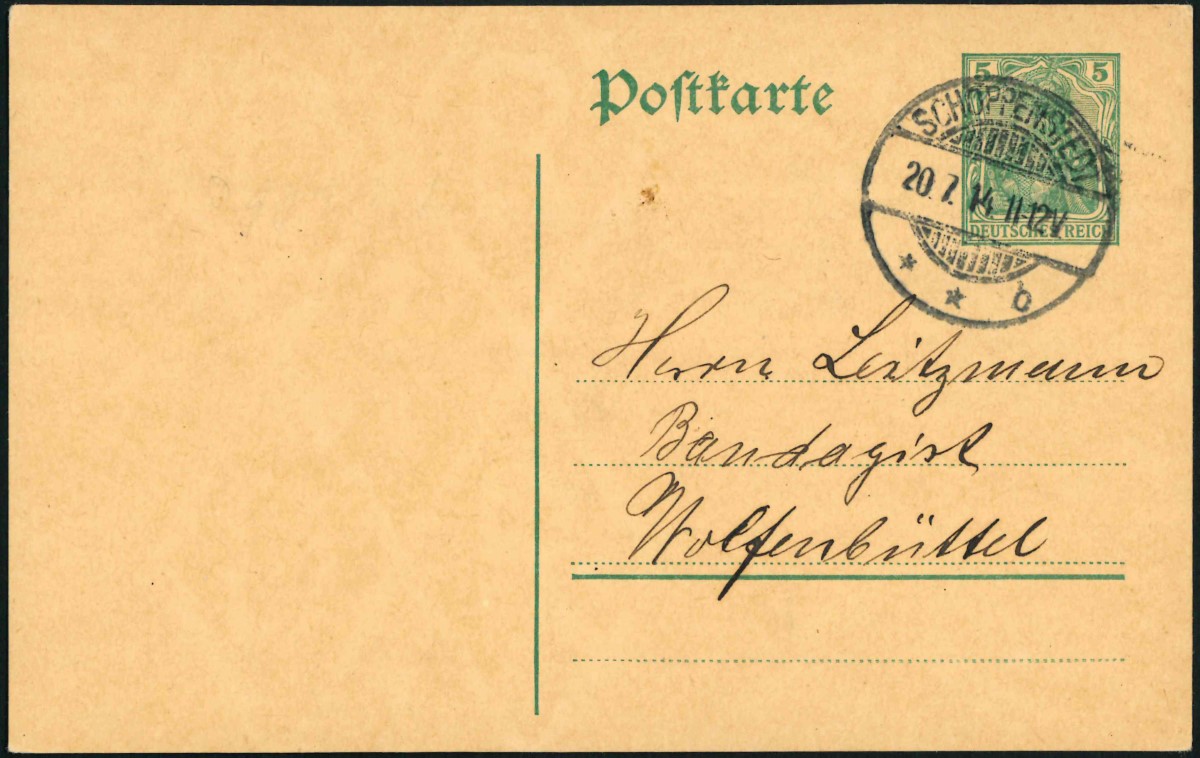 Postkarte
5 5
DEUTSCHES REICH
SCHÖPPENSTEDT
20.7.14. 11-12V.
* * b
Herrn Leitzmann
Bandagist
Wolfenbüttel